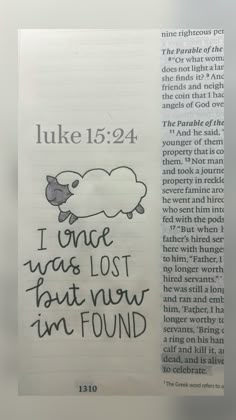 luke 15:24
I once
was LOST
but now
im FOUND
1310
nine righteous per
The Parable of the
8 "Or what woma
does not light a lar
she finds it? 9 And
friends and neigh
the coin that I had
angels of God ove
The Parable of the
11 And he said, "
younger of them
property that is co
them. 13 Not man
and took a journe
property in reckle
severe famine aros
he went and hired
who sent him into
fed with the pods
17 "But when h
father's hired ser
here with hunge
to him, "Father, I
no longer worth
hired servants."'
he was still a long
and ran and emb
him, 'Father, I ha
longer worthy to
servants, 'Bring
a ring on his han
calf and kill it, a
dead, and is alive
to celebrate.
The Greek word refers to a